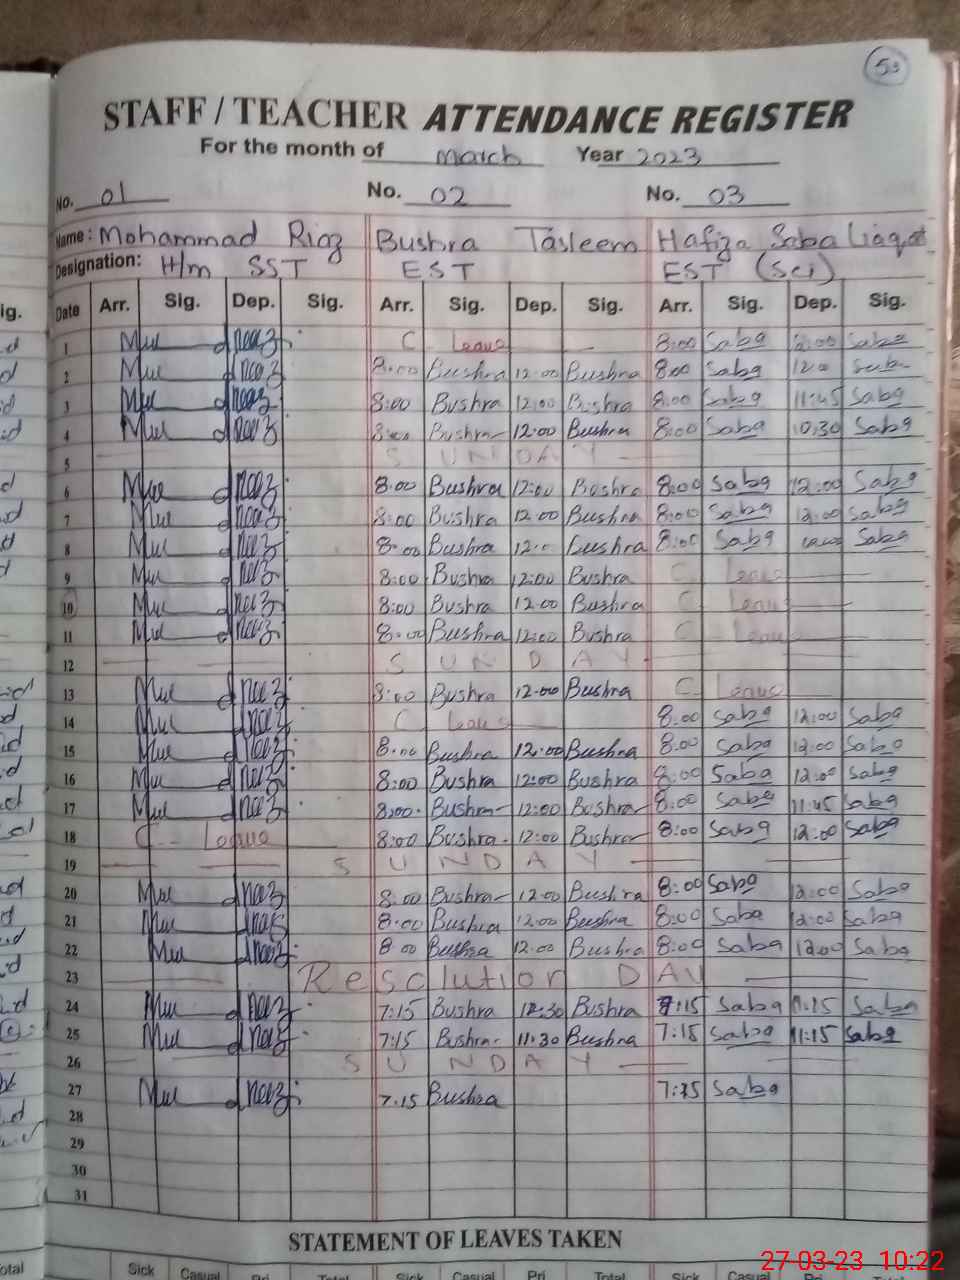 53
STAFF / TEACHER ATTENDANCE REGISTER
For the month of March Year 2023
No. 01 No. 02 No. 03
Name: Mohammad Riaz Bushra Tasleem Hafiza Saba Liaqat
Designation: H/m SST EST EST (Sci)
Date Arr. Sig. Dep. Sig. Arr. Sig. Dep. Sig. Arr. Sig. Dep. Sig.
1 C Leave 8:00 Saba 12:00 Saba
2 8:00 Bushra 12:00 Bushra 8:00 Saba Saba
3 8:00 Bushra 12:00 Bushra 8:00 Saba 11:45 Saba
4 Bushra 12:00 Bushra 8:00 Saba 10:30 Saba
5 SUNDAY
6 8:00 Bushra 12:00 Bushra 8:00 Saba 12:00 Saba
7 8:00 Bushra 12:00 Bushra 8:00 Saba 12:00 Saba
8 8:00 Bushra Bushra 8:00 Saba Saba
9 8:00 Bushra 12:00 Bushra C Leave
10 8:00 Bushra 12:00 Bushra C Leave
11 8:00 Bushra 12:00 Bushra C Leave
12 SUNDAY
13 8:00 Bushra 12:00 Bushra C Leave
14 C Leave 8:00 Saba 12:00 Saba
15 8:00 Bushra 12:00 Bushra 8:00 Saba 12:00 Saba
16 8:00 Bushra 12:00 Bushra 8:00 Saba 12:00 Saba
17 8:00 Bushra 12:00 Bushra 8:00 Saba 11:45 Saba
18 C - Leave 8:00 Bushra 12:00 Bushra 8:00 Saba 12:00 Saba
19 SUNDAY
20 8:00 Bushra 12:00 Bushra 8:00 Saba 12:00 Saba
21 8:00 Bushra 12:00 Bushra 8:00 Saba 12:00 Saba
22 8:00 Bushra 12:00 Bushra 8:00 Saba 12:00 Saba
23 Resolution DAY
24 7:15 Bushra 12:30 Bushra 7:15 Saba 11:15 Saba
25 7:15 Bushra 11:30 Bushra 7:15 Saba 11:15 Saba
26 SUNDAY
27 7:15 Bushra Saba
28
29
30
31
STATEMENT OF LEAVES TAKEN
Sick Casual Pri Total Sick Casual Pri Total Sick Casual Pri
27-03-23 10:22